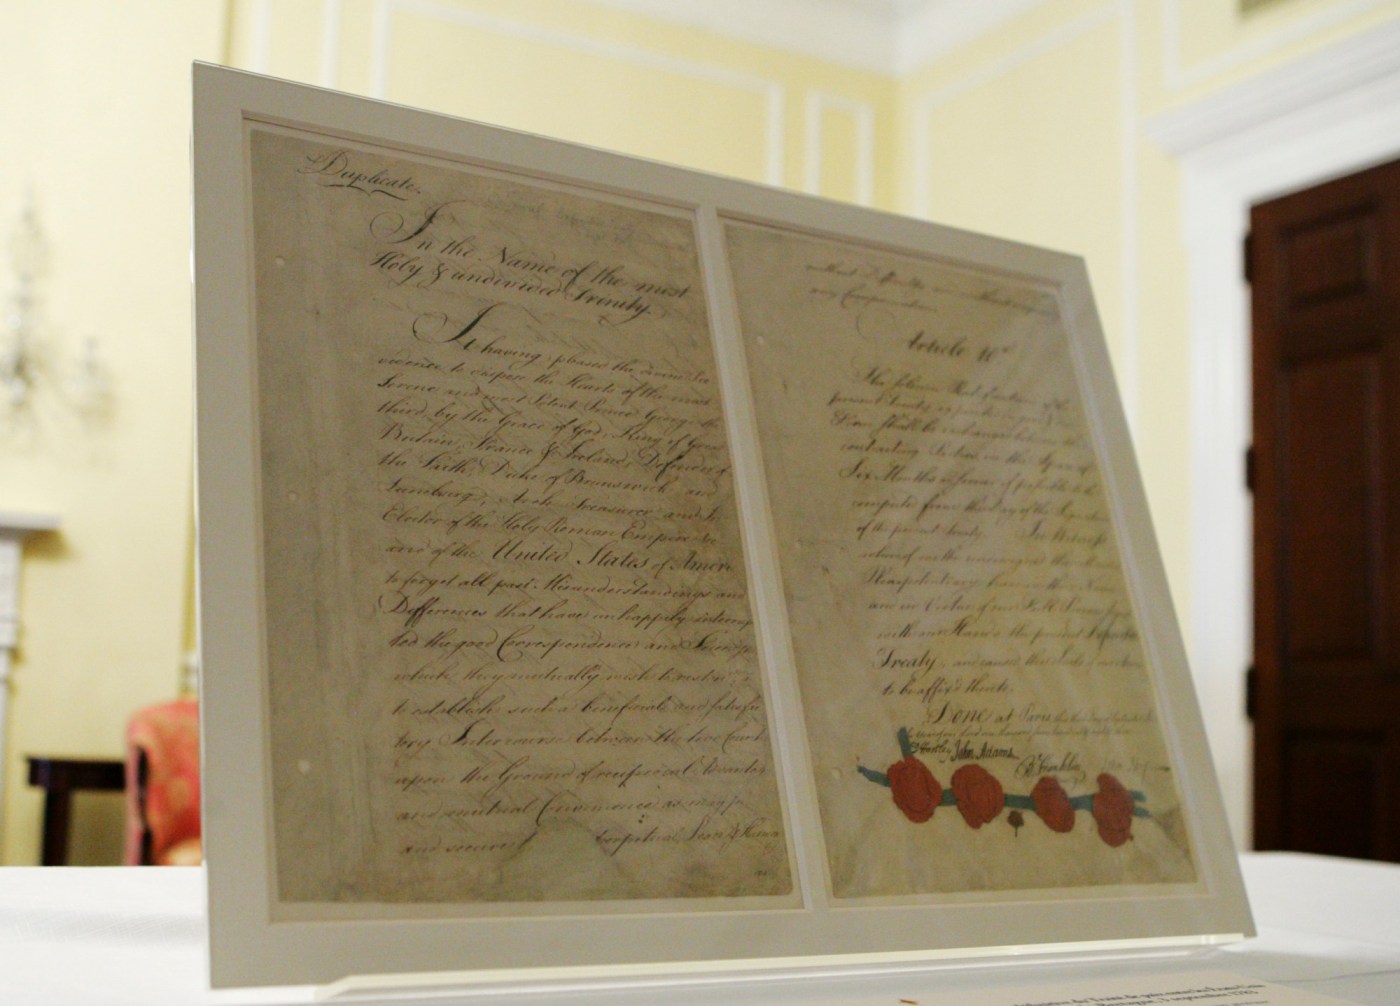 Duplicate.
In the Name of the most
Holy & undivided Trinity.
It having pleased the divine Pro
vidence to dispose the Hearts of the most
Serene and most Potent Prince George the
third, by the Grace of God, King of Great
Britain, France & Ireland, Defender of
the Faith, Duke of Brunswick and
Lunebourg, Arch Treasurer and
Elector of the Holy Roman Empire &c
and of the United States of Ameri
to forget all past Misunderstandings and
Differences that have unhappily interrup
ted the good Correspondence and Friendship
which they mutually wish to restore;
to establish such a beneficial and satisfac
tory Intercourse between the two Count
upon the Ground of reciprocal Advantages
and mutual Convenience as may
and secure Perpetual Peace & Harmo
without Difficulty and without
any Compensation.
Article 10th
The solemn Ratifications of the
present Treaty
Form shall be exchanged between the
contracting Parties in the Space of
Six Months or sooner if possible to be
computed from the Day of the Signature
of the present Treaty. In Witness
whereof we the undersigned their
Plenipotentiary have in their Name
and in Virtue of our Full Powers signed
with our Hands the present Definitive
Treaty, and caused the Seals
to be affix'd thereto.
Done at Paris, this third day of September
D Hartley John Adams B Franklin John Jay